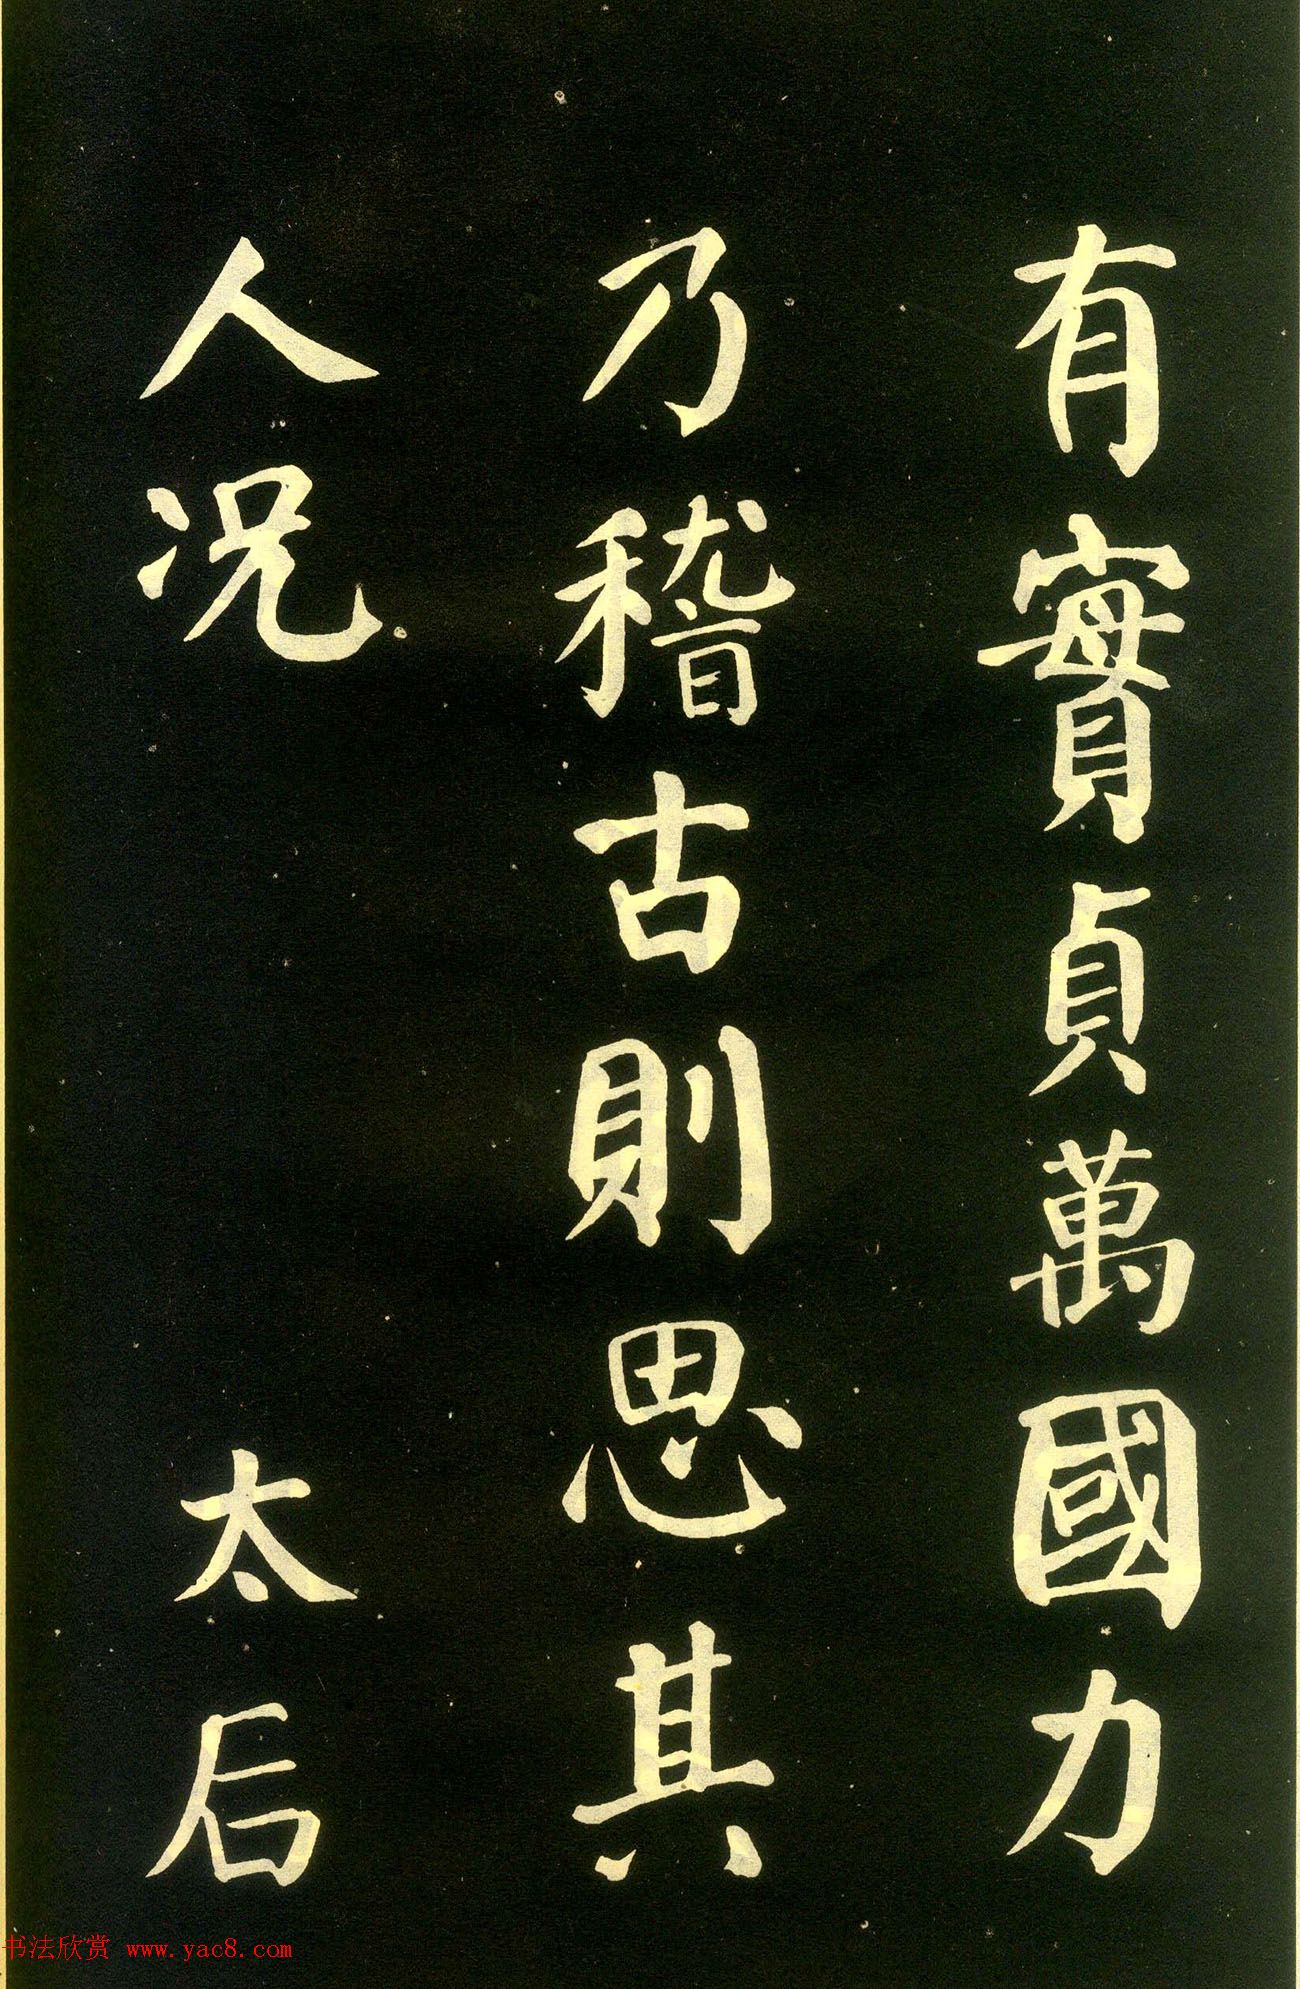 有實貞萬國力
乃稽古則思其
人況 太后
书法欣赏 www.yac8.com